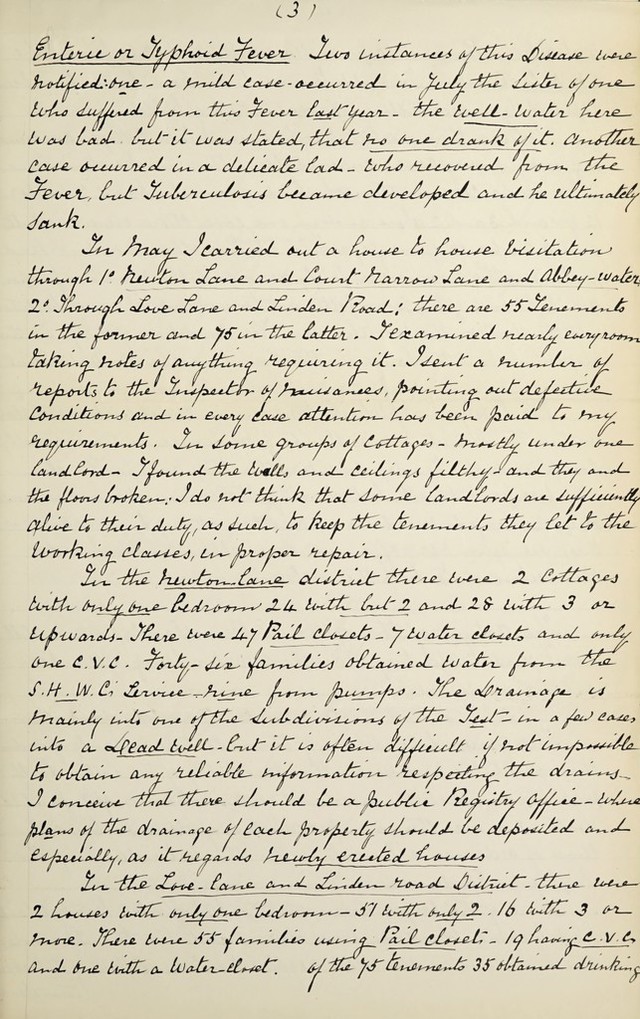 (3)
Enteric or Typhoid Fever Two instances of this Disease were
notified: one - a mild case - occurred in July the Sister of one
who suffered from this Fever last year - the well-water here
was bad but it was stated, that no one drank of it. Another
case occurred in a delicate lad - who recovered from the
Fever, but Tuberculosis became developed and he ultimately
sank.
In May I carried out a house to house Visitation
through 1º Newton Lane and Court Narrow Lane and Abbey-water,
2º Through Love Lane and Linden Road; there are 55 Tenements
in the former and 75 in the latter. I examined nearly every room
taking notes of anything requiring it. I sent a number of
reports to the Inspector of Nuisances, pointing out defective
Conditions and in every case attention has been paid to my
requirements. In some groups of Cottages - mostly under one
landlord - I found the Walls and ceilings filthy - and they and
the floors broken; I do not think that some landlords are sufficiently
alive to their duty, as such, to keep the tenements they let to the
Working classes, in proper repair.
In the Newton-lane district there were 2 Cottages
with only one bedroom 24 with but 2 and 28 with 3 or
upwards - There were 47 Pail closets - 7 Water closets and only
one C.V.C. Forty-six families obtained Water from the
S.H.W.C: Service - nine from pumps. The Drainage is
mainly into one of the Subdivisions of the Test - in a few cases
into a Dead well - but it is often difficult if not impossible
to obtain any reliable information respecting the drains -
I conceive that there should be a public Registry office - where
plans of the drainage of each property should be deposited and
especially, as it regards newly erected houses
In the Love-lane and Linden road District - there were
2 houses with only one bedroom - 57 with only 2. 16 with 3 or
more. There were 55 families using Pail closets - 19 having C.V.Cs
and one with a Water-closet. Of the 75 tenements 35 obtained drinking